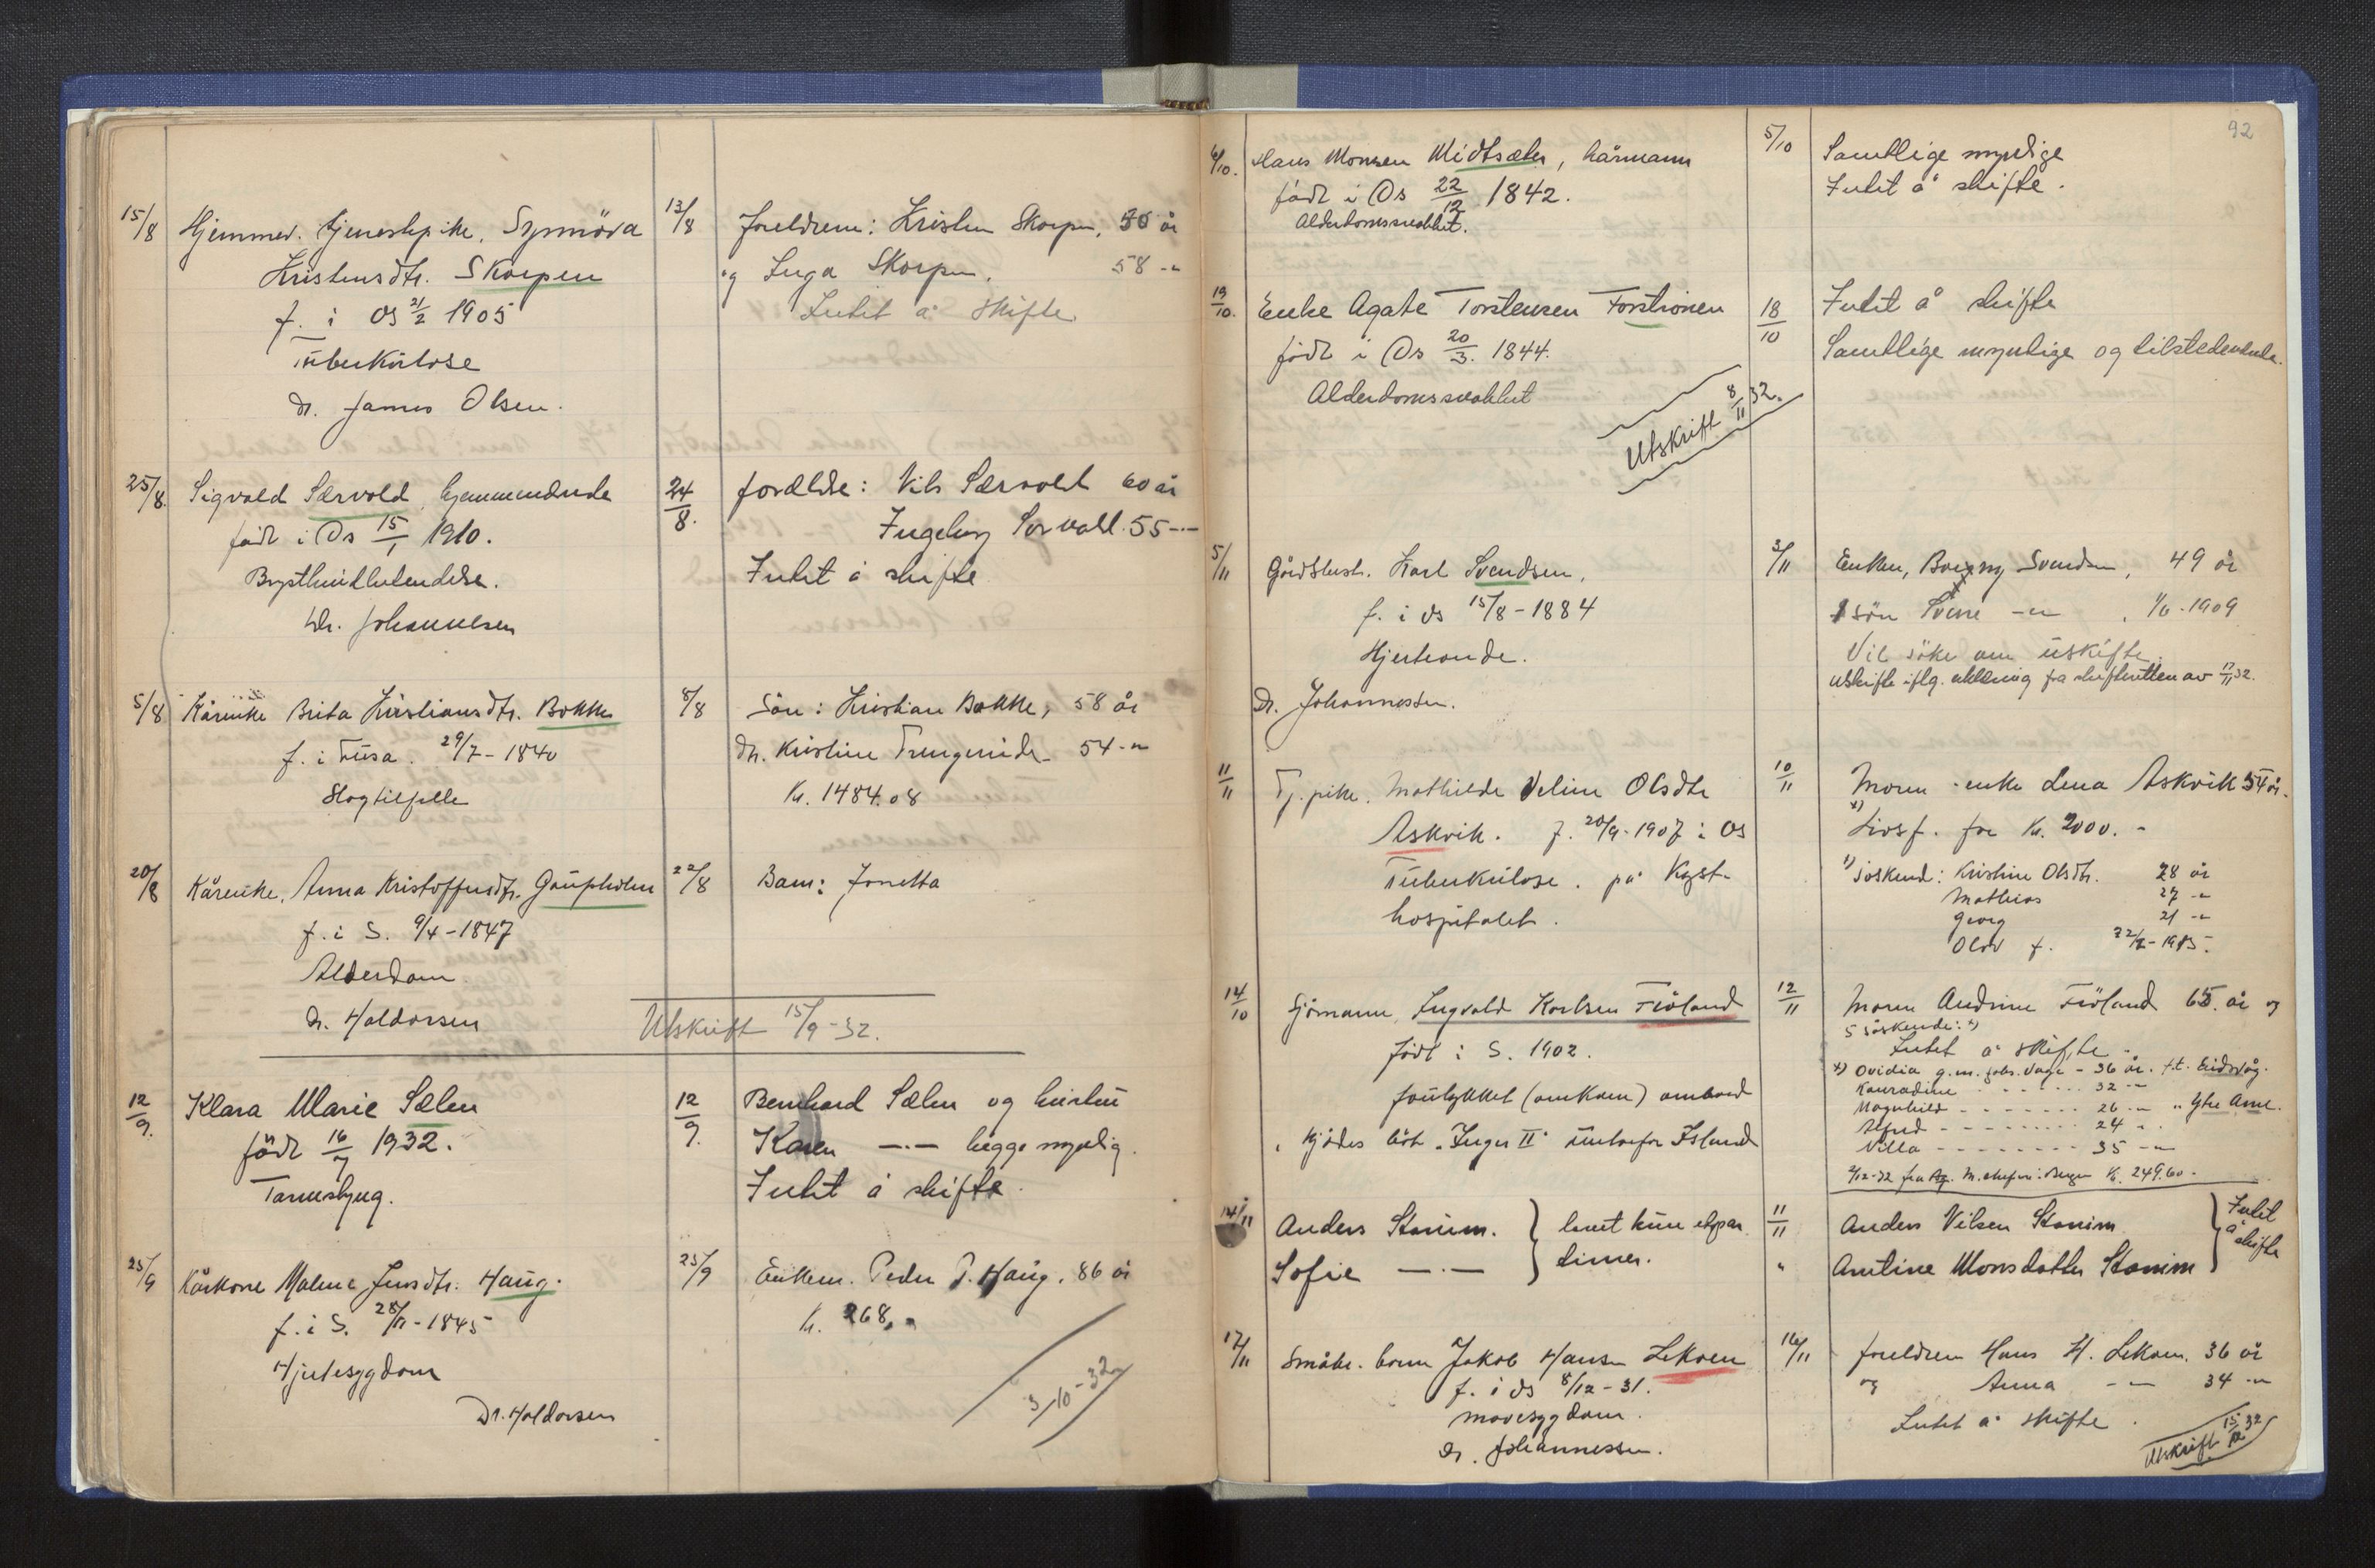 15/8 Hjemmev. tjenestepike, Synnöva 13/8 Foreldrene: Kristen Skorpen, 56 år
Kristensdtr. Skorpen og Inga Skorpen. 58 -"-
f. i Os 21/2 1905 Intet å skifte
Tuberkulose
Dr. James Olsen.
25/8. Sigvald Særvold, hjemmeværende 24/8. forældre: Nils Særvold 60 år
født i Os 15/1 1910. Ingeborg Sørvold. 55 -"-
Brysthindebetendelse. Intet å skifte
Dr. Johannesen
5/8 Kårenke Brita Kristiansdtr. Bokke 5/8 Sön: Kristian Bakke, 58 år
f. i Fusa. 29/7 - 1840 Dtr. Kristine Trengereide 54 -"-
Slagtilfelle Kr. 1484.08
20/8 Kårenke, Anna Kristoffersdtr. Gaupholm 22/8 Barn: Jonetta
f. i S. 9/4 - 1847
Alderdom
Dr. Haldorsen Utskrift 15/9 - 32.
12/9. Klara Marie Sælen 12/9. Bernhard Sælen og hustru
född 16/7 1932. Karen -"- begge myndig.
Tarmslyng. Intet å skifte.
25/9 Kårkone Malene Jensdtr. Haug. 25/9 Enkem. Peder P. Haug, 86 år
f. i S. 28/11 - 1845 Kr. 268,
Hjertesygdom
Dr. Haldorsen 3/10 - 32
92
6/10. Hans Monsen Midtsæter, kårmann 5/10 Samtlige myndige
född i Os 22/12 1842. Intet å skifte.
Alderdomssvakhet.
19/10. Enke Agate Torstensen Forströnen 18/10 Intet å skifte
född i Os 20/3. 1844. Samtlige myndige og tilstedeværende.
Alderdomssvakhet
Utskrift 8/11 32.
5/11 Gårdbruk. Karl Svendsen, 3/11 Enken, Svendsen, 49 år
f. i Os 15/8 - 1884 1 sön Sverre -"- 1/6 - 1909
Hjerteonde. Vil söke om uskifte.
Dr. Johannessen. Uskifte iflg. melding fra skifteretten av 17/11 32.
11/11 Tj. pike. Mathilde Veline Olsdtr 10/11 Moren - enke Lena Askvik 54 år.
Askvik. f. 20/9 - 1907 i Os x) Livsf. for Kr. 2000. -
Tuberkulose. på Kyst- 1) Söskend: Kristine Olsdtr. 28 år
hospitalet. Mathias 27 -"-
Georg 21 -"-
Olav f. 22/2 - 1915.
14/10 Sjömann, Ingvald Karlsen Fröland 12/11 Moren Andrine Fröland 65 år og
född i S. 1902. 5 söskende: x)
forulykket (omkom) ombord Intet å skifte -
i kjödes båt "Inger II" innenfor Island x) Ovidia g.m. Johs. Vage - 36 år. f.t. Eidsvåg.
Konradine 32 -"-
Magnhild 26 -"- " Ytre Arne.
Alfred 24 "
Villa 35 -"-
2/12-32 fra M. i Bergen Kr. 249.60 -
14/11 Anders Stonim. } levet kun etpar 11/11 Anders Nilsen Stonim } Intet
Sofie -"- } timer. " Antine Monsdatter Stonim } å skifte
17/11 Småbr. barn Jakob Hansen Lekven 16/11 foreldren Hans H. Lekven. 36 år
f. i Os 8/12 - 31. og Anna -"- 34 -"-
mavesygdom. Intet å skifte.
Dr. Johannessen. Utskrift 15/12 32